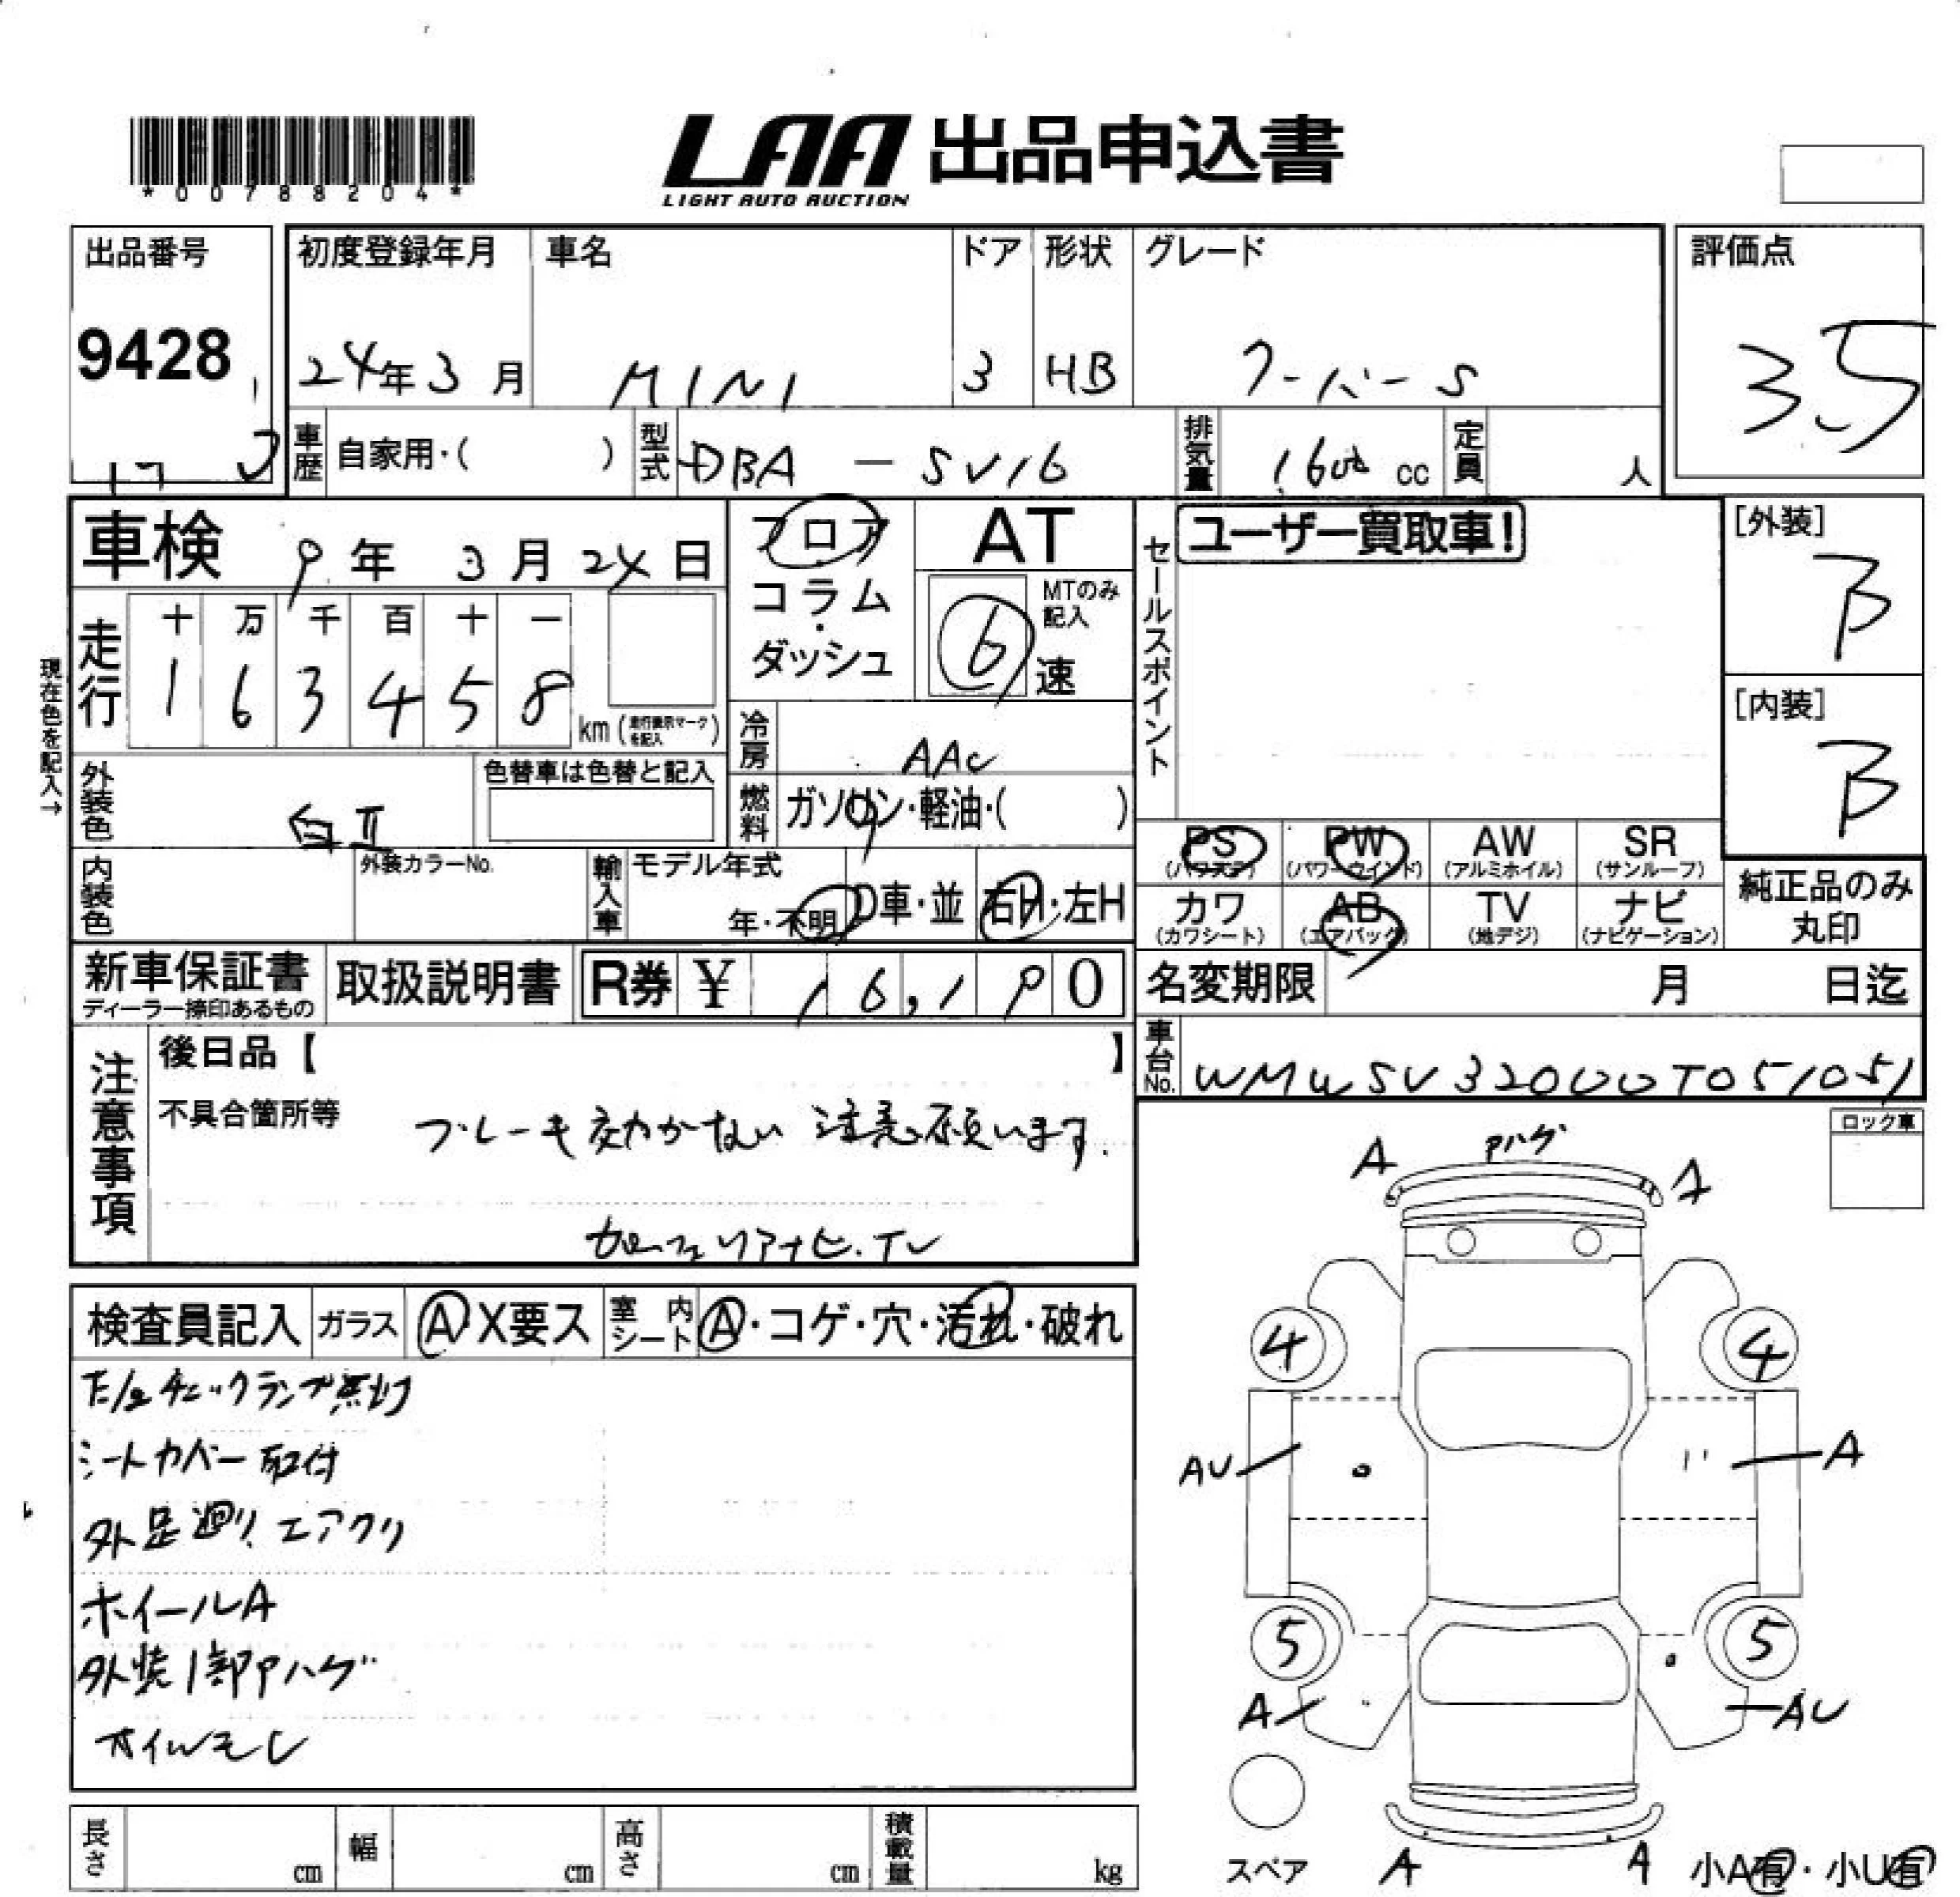 *00788204*
LAA 出品申込書
LIGHT AUTO AUCTION
出品番号
9428
初度登録年月
24年3月
車名
MINI
ドア
3
形状
HB
グレード
クーパーS
評価点
3.5
車歴 自家用・( )
型式 DBA - SV16
排気量 1,600 cc
定員 人
車検 9年 3月 24日
フロア
コラム
・
ダッシュ
AT
6 速
MTのみ記入
現在色を記入→
走行
十 万 千 百 十 一
1 6 3 4 5 8
km (走行表示マークを記入)
冷房 AAC
外装色 白II
色替車は色替と記入
燃料 ガソリン・軽油・( )
内装色
外装カラーNo.
輸入車 モデル年式
年・不明
D車・並
右H・左H
新車保証書
ディーラー捺印あるもの
取扱説明書
R券 ¥ 16,190
セールスポイント
ユーザー買取車!
[外装]
B
[内装]
B
PS
(パワステ)
PW
(パワーウインド)
AW
(アルミホイル)
SR
(サンルーフ)
カワ
(カワシート)
AB
(エアバッグ)
TV
(地デジ)
ナビ
(ナビゲーション)
純正品のみ
丸印
名変期限 月 日迄
車台No. WMWSV32000T051051
注意事項
後日品【 】
不具合箇所等
ブレーキ効かない 注意願います.
ナビ. TV
検査員記入
ガラス A X要ス
室内シート A・コゲ・穴・汚れ・破れ
チェックランプ点灯
シートカバー取付
外足廻り、エアクリ
ホイールA
外装1部Pハゲ
オイルモレ
長さ cm
幅 cm
高さ cm
積載量 kg
ロック車
A
Pハゲ
A
4
4
AU
A
5
5
A
AU
スペア
A
A
小A有・小U有